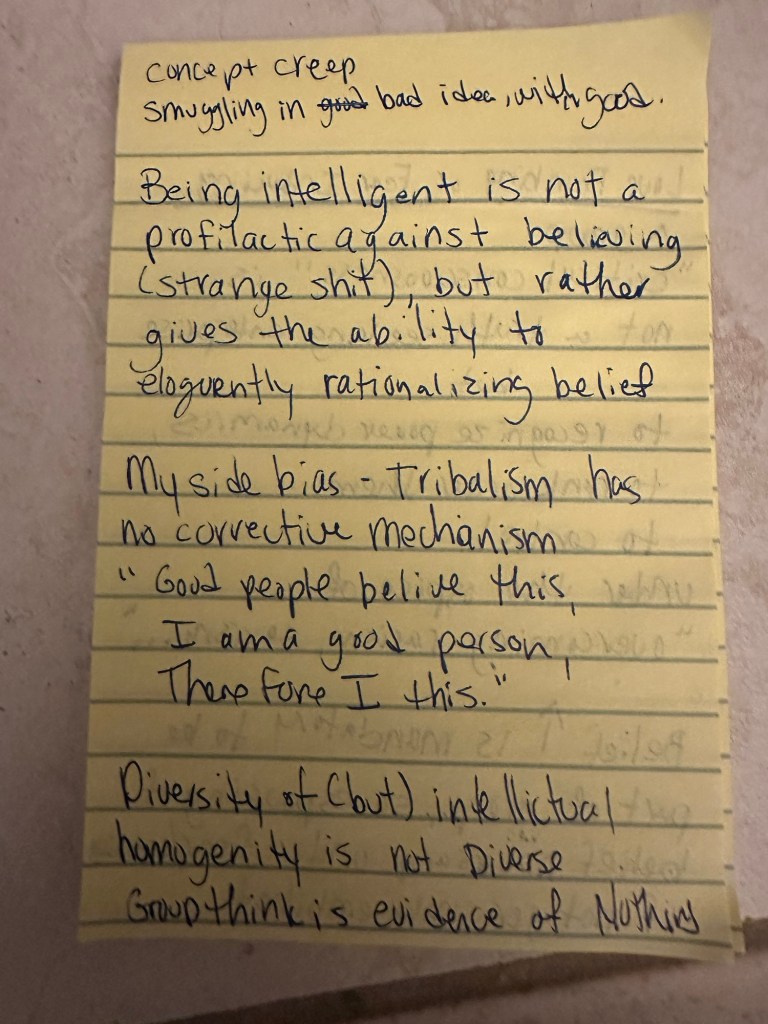 concept creep
smuggling in good bad idea, with good.
Being intelligent is not a
profilactic against believing
(strange shit), but rather
gives the ability to
eloquently rationalizing belief
My side bias - Tribalism has
no corrective mechanism
"Good people belive this,
I am a good person,
Therefore I this."
Diversity of (but) intellictual
homogenity is not Diverse
Groupthink is evidence of Nothing